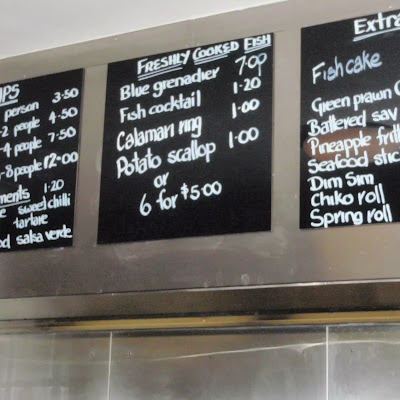 IPS
person 3·50
-2 people 4·50
-4 people 7·50
-8 people 12·00
ments 1·20
sweet chilli
tartare
salsa verde
FRESHLY COOKED FISH
Blue grenadier 7·00
Fish cocktail 1·20
Calamari ring 1·00
Potato scallop 1·00
or
6 for $5·00
Extra
Fish cake
Green prawn
Battered sav
Pineapple fritt
Seafood stic
Dim Sim
Chiko roll
Spring roll